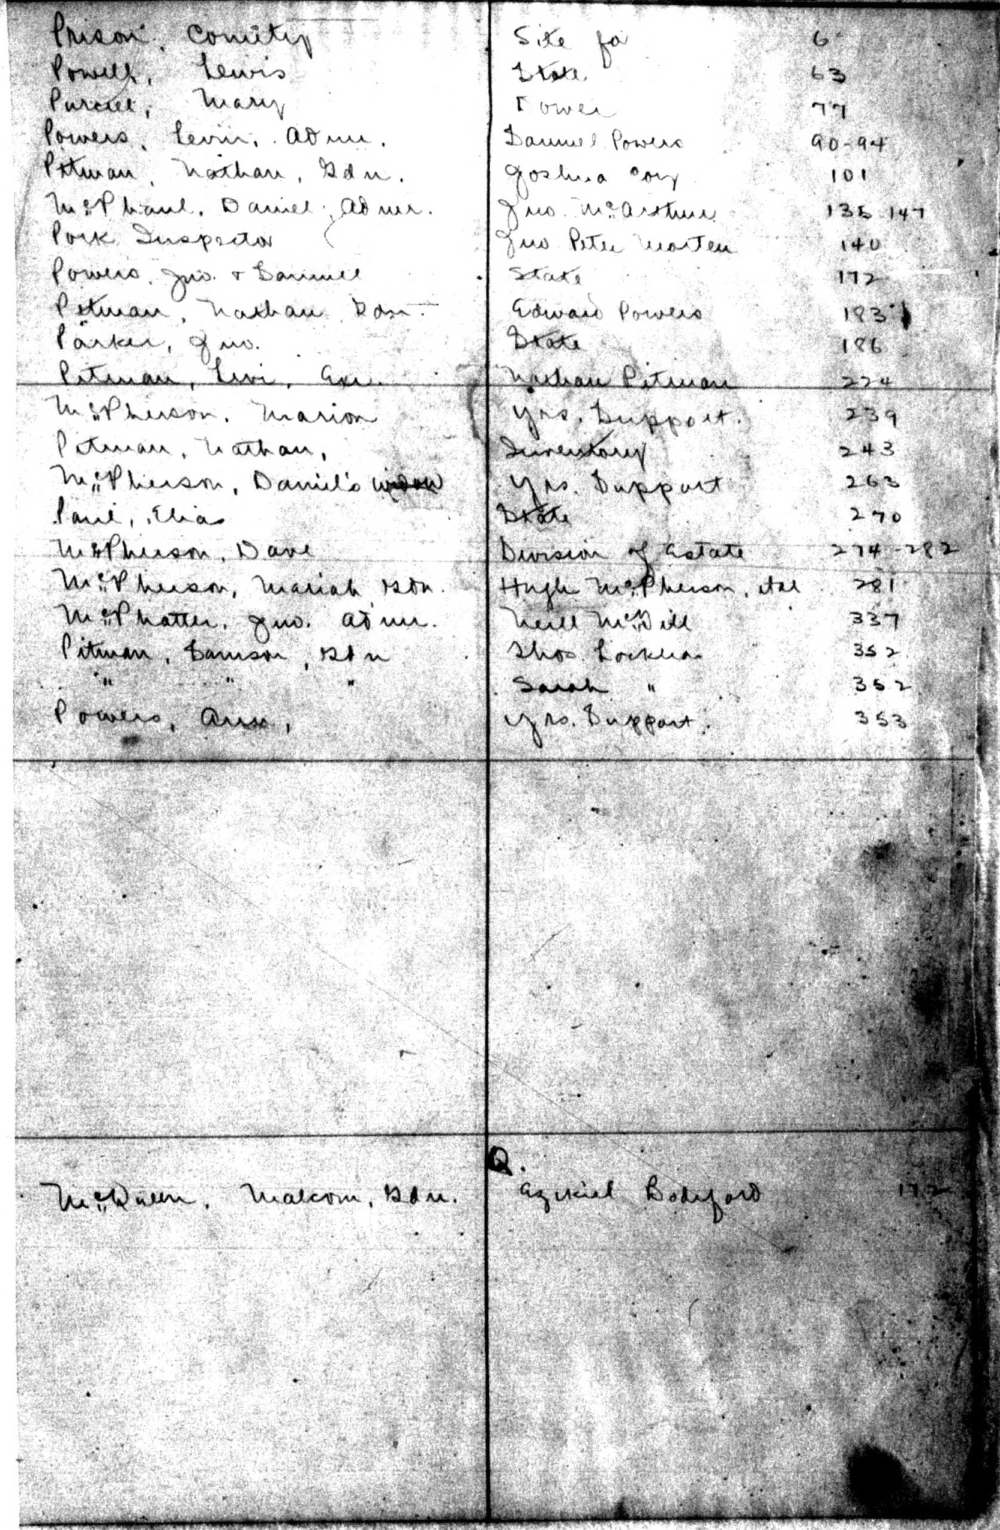 Prison, County Site for 6
Powell, Lewis State 63
Purcell, Mary Dower 77
Powers, Levin, Admr. Samuel Powers 90-94
Pitman, Nathan, Gdn. Joshua 101
McPhaul, Daniel, Admr. Jno. McArthur 135-147
Pork Inspector Jno Peter Marten 140
Powers, Jno. & Sammel State 172
Pitman, Nathan Gdn. Edward Powers 183
Parker, Jno. State 186
Pitman, Levi, Exr. Nathan Pitman 224
McPherson, Marion yrs. Support. 239
Pitman, Nathan, Inventory 243
McPherson, Daniel's widow yrs. Support 263
Paul, Elias State 270
McPherson, Dave Division of Estate 274-282
McPherson, Mariah, Gdn. Hugh McPherson, etal 281
McPhatter, Jno. Admr. Neill McGill 337
Pitman, Samson, Gdn Thos. Locklear 352
" " " Sarah " 352
Powers, Ann, yrs. Support. 353
Q.
McQueen, Malcom, Gdn. Ezekiel Bodiford 172